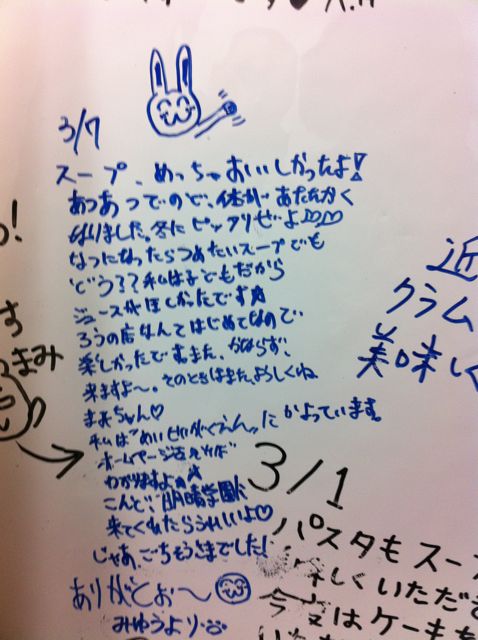 3/7
スープ、めっちゃおいしかったよ!
あつあつでので、体が あたたかく
なりました。冬に ピッタリぜよ♡♡
なつになったらつめたいスープでも
どう??私は子どもだから
ジュースがほしかったです☆
ろうの店なんてはじめてなので
楽しかったでむまた、かならず、
来ますよ〜。そのときはまた、よろしくね
まぁちゃん♡
私は"めいせいがくえん"に かよっています。
ホームページを見れば
わかりますよ☆
こんど、明晴学園に
来てくれたらうれしいよ♡
じゃあ、ごちそうさまでした!
ありがとぉ〜
みゆうより
近
クラム
美味しく
3/1
パスタもスー
しくいただき
今度はケーキも
す
つまみ